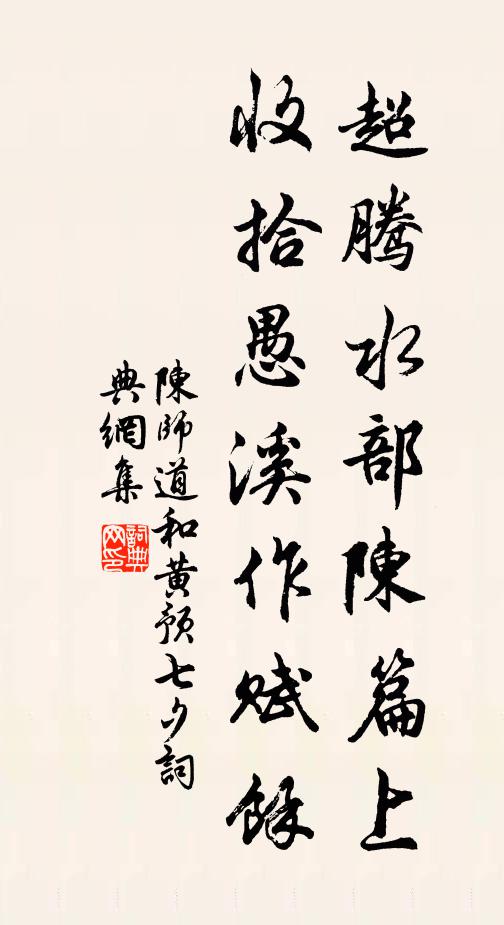 超騰水部陳篇上
收拾愚溪作賦餘
陳師道和黃預七夕詞
典網集
詞典網印